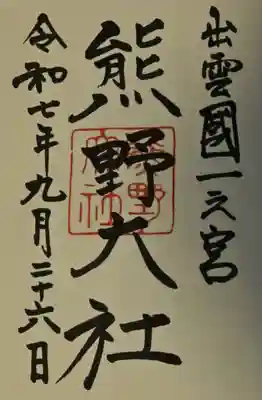 出雲國一之宮
熊野大社
令和七年九月二十六日
熊野
大社